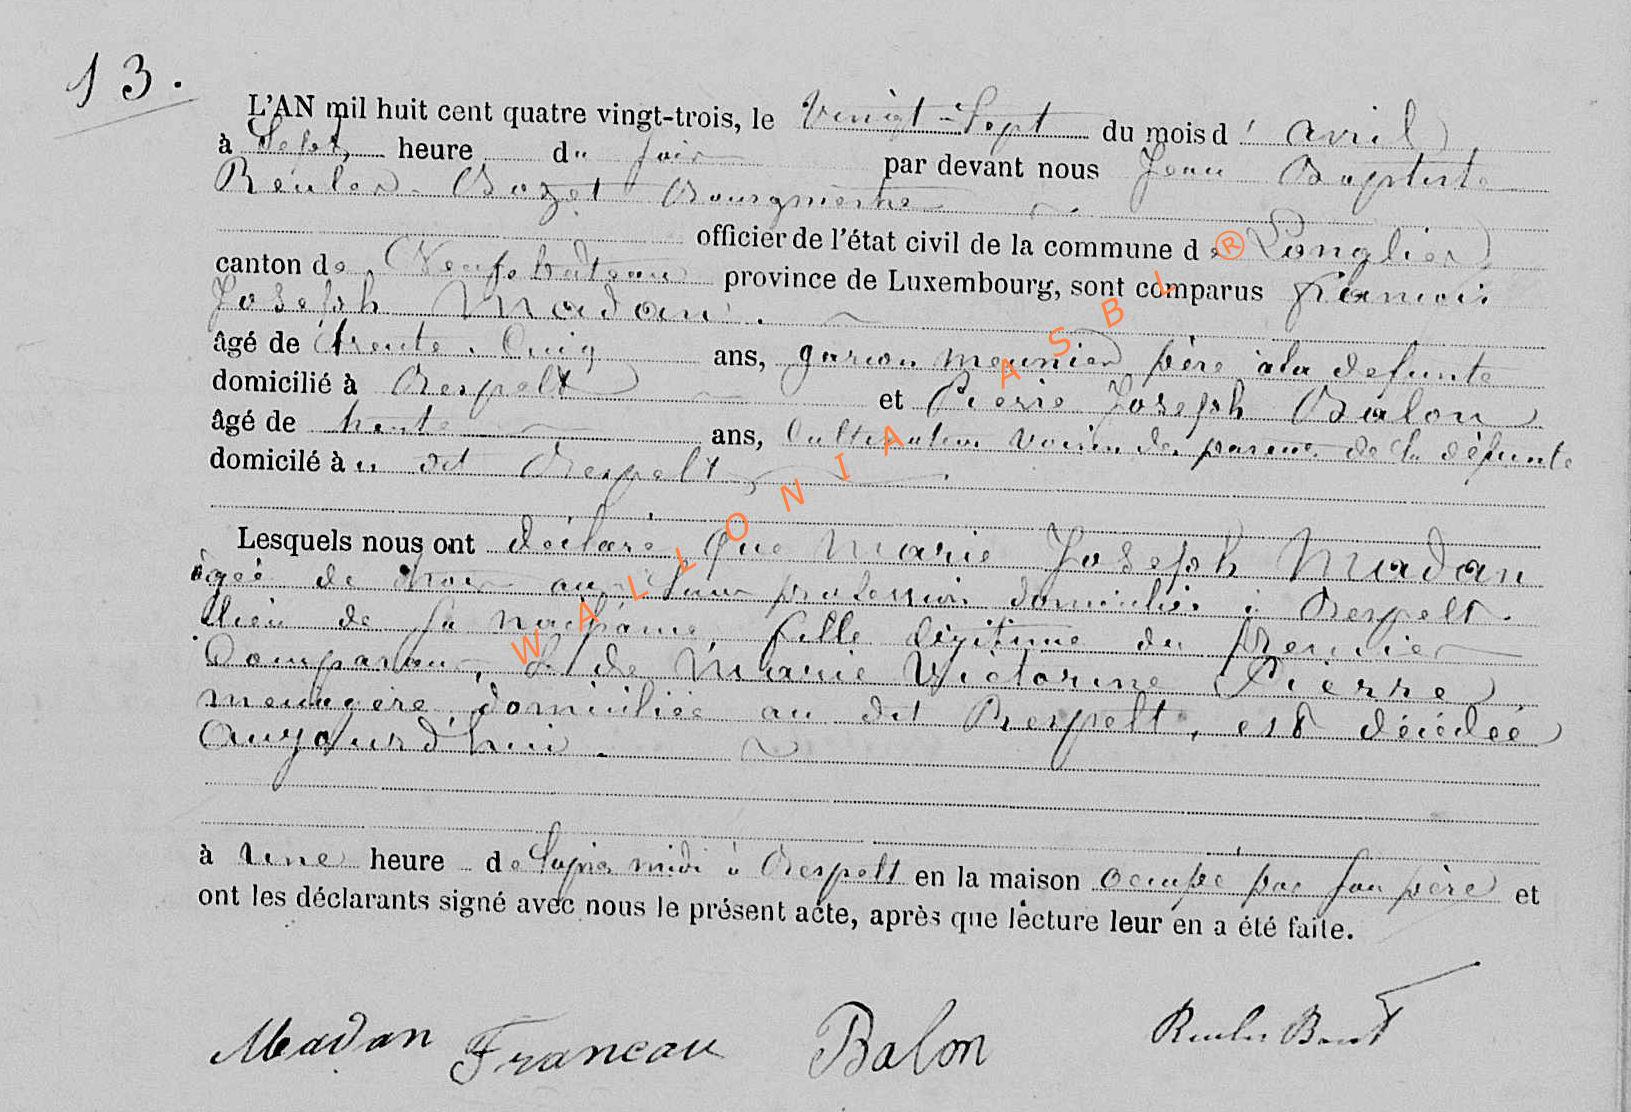 13.
L'AN mil huit cent quatre vingt-trois, le Vingt-Sept du mois d' avril
à Sept heure du soir par devant nous Jean Baptiste
Reuler Bozet Bourgmestre
officier de l'état civil de la commune de Longlier
canton de Neufchateau province de Luxembourg, sont comparus
Joseph Madan.
âgé de trente. Cinq ans, garcon meunier père à la defunte
domicilié à Respelt et Pierre Joseph Balon
âgé de trente ans, Cultivateur voisin de la défunte
domicilé à u dit Respelt
Lesquels nous ont déclaré que Marie Joseph Madan
agée de trois ans sans profession domiciliée à Respelt.
lieu de sa naissance, fille légitime du premier
Comparant, & de Marie Victorine Pierre
menagère domiciliée au dit Respelt, est décédée
Aujourd'hui.
à Une heure de l'apres midi à Respelt en la maison ocupé par son père et
ont les déclarants signé avec nous le présent acte, après que lecture leur en a été faite.
Madan Francau Balon
® WALLONIA ASBL